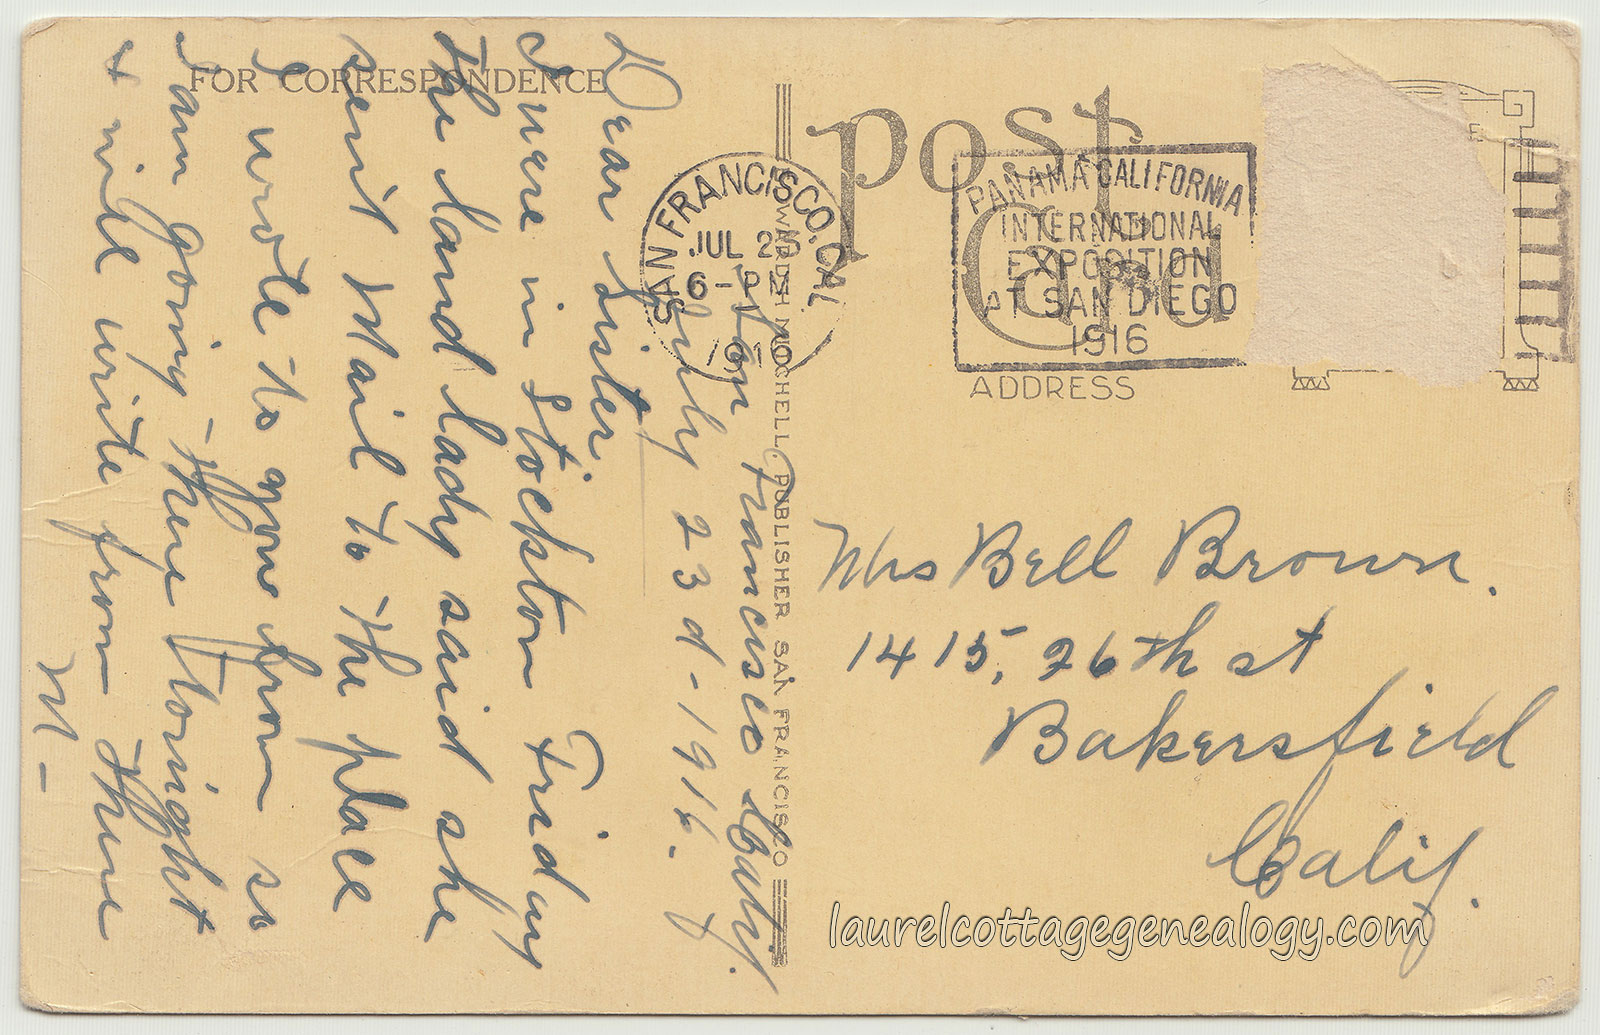 FOR CORRESPONDENCE
San Francisco Calif.
July 23d-1916.
Dear Sister.
I were in Stockton Friday
the land lady said she
sent Mail to the place
I wrote to you from so
I am going there tonight
+ will write from there
M-
HOWARD H MOCHELL. PUBLISHER SAN FRANCISCO
post
Card
SAN FRANCISCO, CAL
JUL 2
6-PM
PANAMA CALIFORNIA
INTERNATIONAL
EXPOSITION
AT SAN DIEGO
1916
ADDRESS
Mrs Bell Brown.
1415, 26th st
Bakersfield
Calif.
laurelcottagegenealogy.com